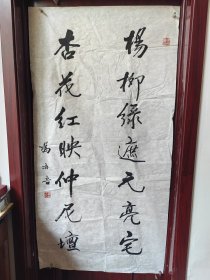 楊柳綠遮元亮宅
杏花紅映仲尼壇